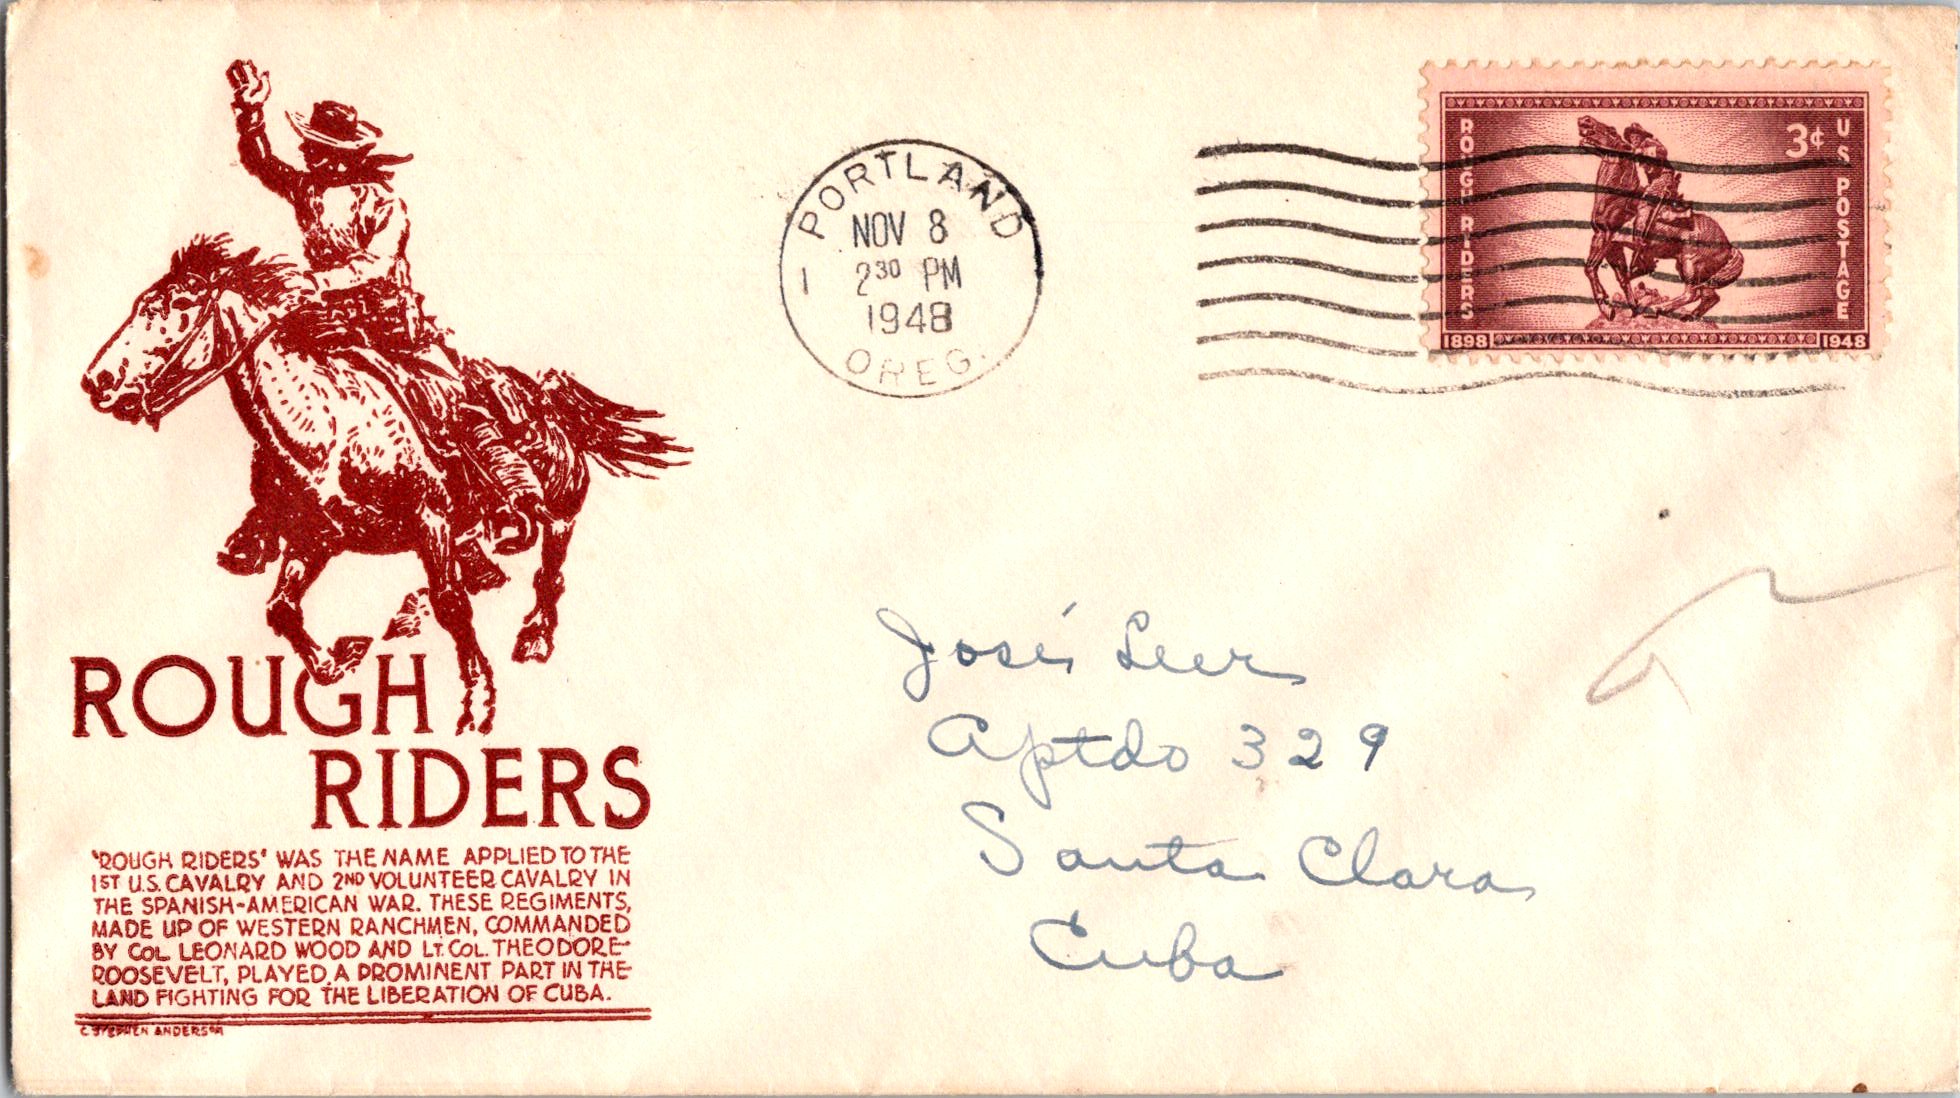 PORTLAND
1
NOV 8
2 30 PM
1948
OREG.
ROUGH RIDERS
3¢
U S POSTAGE
1898
1948
ROUGH
RIDERS
'ROUGH RIDERS' WAS THE NAME APPLIED TO THE
1ST U.S. CAVALRY AND 2ND VOLUNTEER CAVALRY IN
THE SPANISH-AMERICAN WAR. THESE REGIMENTS,
MADE UP OF WESTERN RANCHMEN, COMMANDED
BY COL. LEONARD WOOD AND LT. COL. THEODORE
ROOSEVELT, PLAYED A PROMINENT PART IN THE
LAND FIGHTING FOR THE LIBERATION OF CUBA.
C. STEPHEN ANDERSON
José
Aptdo 329
Santa Clara
Cuba